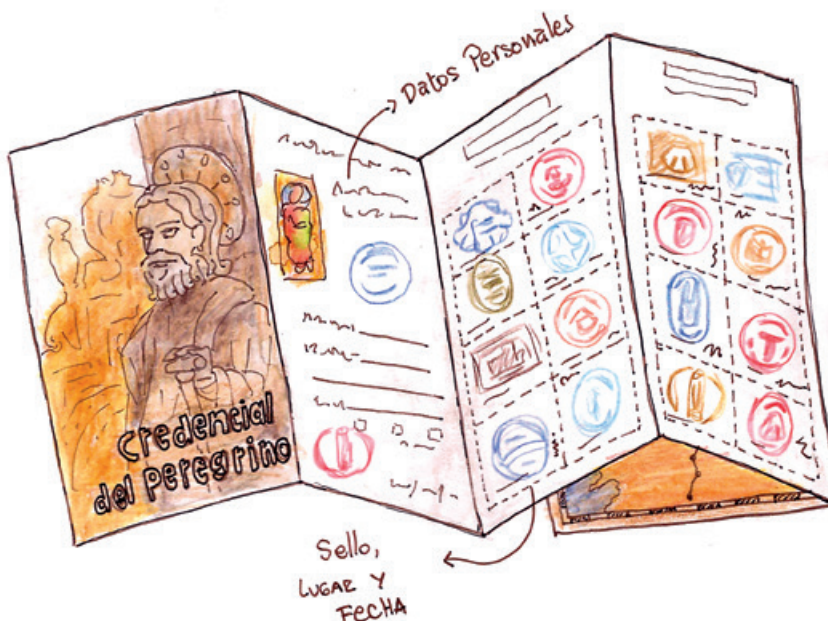 Datos Personales
Credencial
del Peregrino
Sello,
LUGAR Y
FECHA